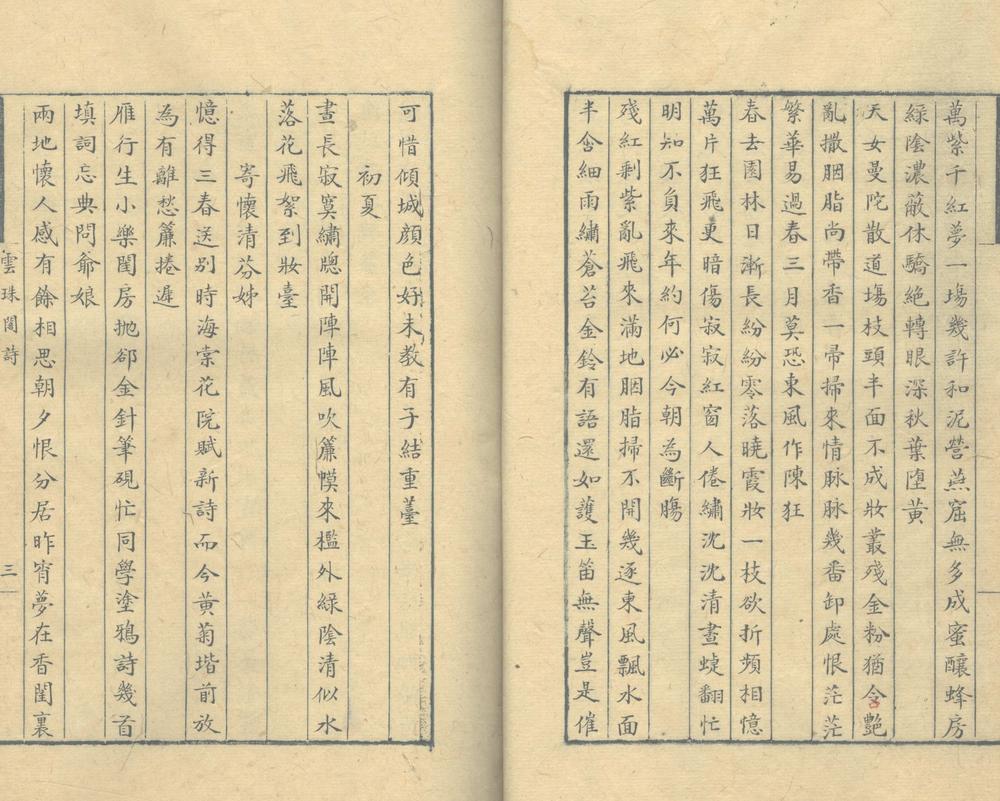 萬紫千紅夢一場幾許和泥營燕窟無多成蜜釀蜂房
綠陰濃蔽休驕絕轉眼深秋葉墮黃
天女曼陀散道場枝頭半面不成妝叢殘金粉猶含艷
亂撒胭脂尚帶香一帚掃來情脉脉幾番卸處恨茫茫
繁華易過春三月莫恐東風作陳狂
春去園林日漸長紛紛零落曉霞妝一枝欲折頻相憶
萬片狂飛更暗傷寂寂紅窗人倦繡沈沈清晝蜨翻忙
明知不負來年約何必今朝為斷腸
殘紅剩紫亂飛來滿地胭脂掃不開幾逐東風飄水面
半含細雨繡蒼苔金鈴有語還如護玉笛無聲豈是催
可惜傾城顏色好未教有子結重薹
初夏
晝長寂寞繡牕開陣陣風吹簾幙來檻外綠陰清似水
落花飛絮到妝臺
寄懷清芬姊
憶得三春送別時海棠花院賦新詩而今黃菊堦前放
為有離愁簾捲遲
雁行生小樂閨房拋卻金針筆硯忙同學塗鴉詩幾首
填詞忘典問爺娘
兩地懷人感有餘相思朝夕恨分居昨宵夢在香閨裏
雲珠閣詩
三